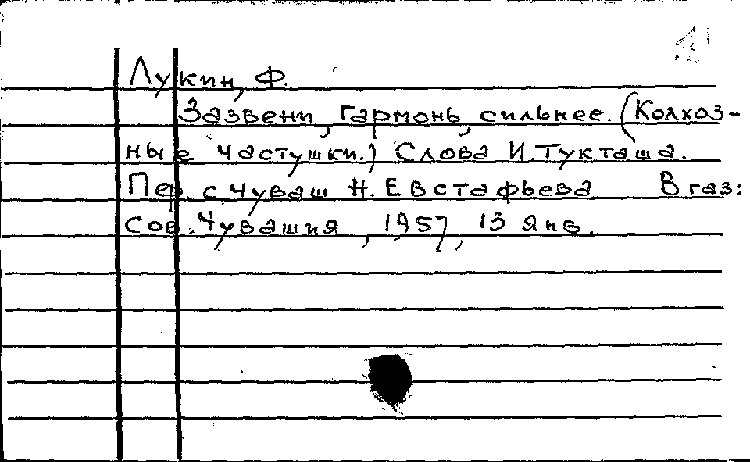 Лукин, Ф.
Зазвени, гармонь, сильнее. (Колхоз-
ные частушки.) Слова И. Тукташа.
Пер. с чуваш Н. Евстафьева В газ:
Сов. Чувашия, 1957, 13 янв.